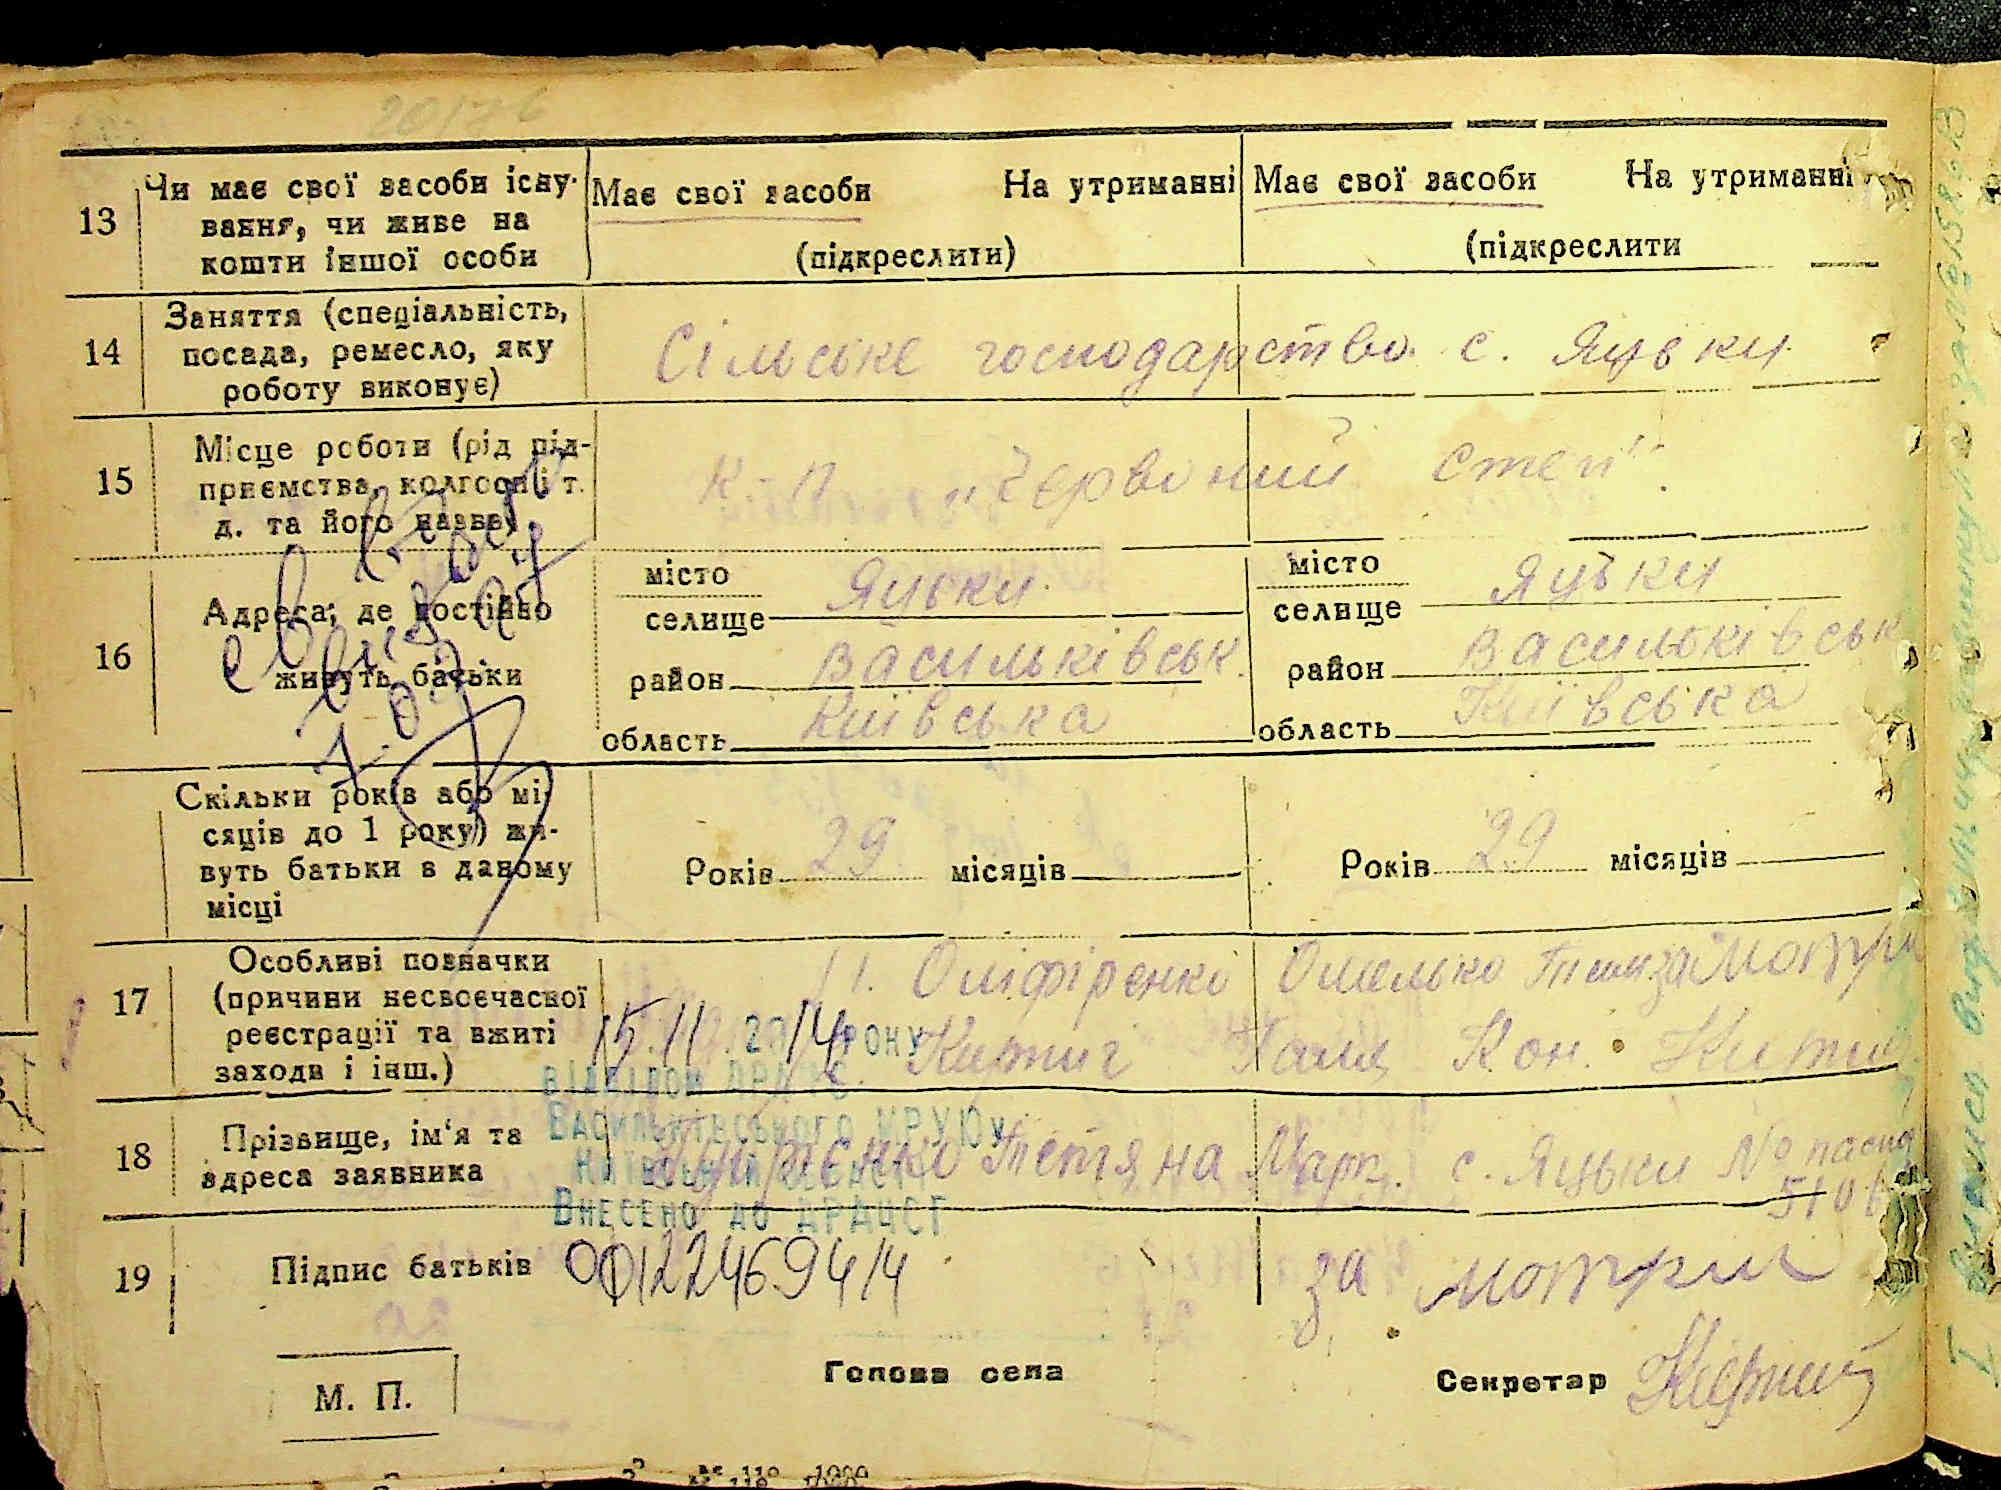 20176
13 Чи має свої засоби існу- Має свої засоби На утриманні Має свої засоби На утриманні
вання, чи живе на
кошти іншої особи (підкреслити) (підкреслити
14 Заняття (спеціальність,
посада, ремесло, яку Сільське господарство с. Яцьки
роботу виконує)
15 Місце роботи (рід під-
приємства, колгосп і т. К. П. „Червоний степ“.
д. та його назва)
16 Адреса; де постійно
живуть батьки
місто Яцьки місто Яцьки
селище селище
район Васильківськ. район Васильківськ
область Київська область Київська
Скільки років або мі-
сяців до 1 року) жи-
вуть батьки в даному Років 29 місяців Років 29 місяців
місці
17 Особливі позначки 1. Оліфіренко Омелько за Мотри
(причини несвоєчасної
реєстрації та вжиті 15.11.2014 року 2. Галя Кон.
заходи і інш.)
відділом ДРАЦС
Васильківського МРУЮ у
Київській області
Внесено до ДРАЦСГ
18 Прізвище, ім'я та Тетяна Март. с. Яцьки № пасп
адреса заявника 510
19 Підпис батьків 00122469414 за Мотрии
М. П. Голова села Секретар